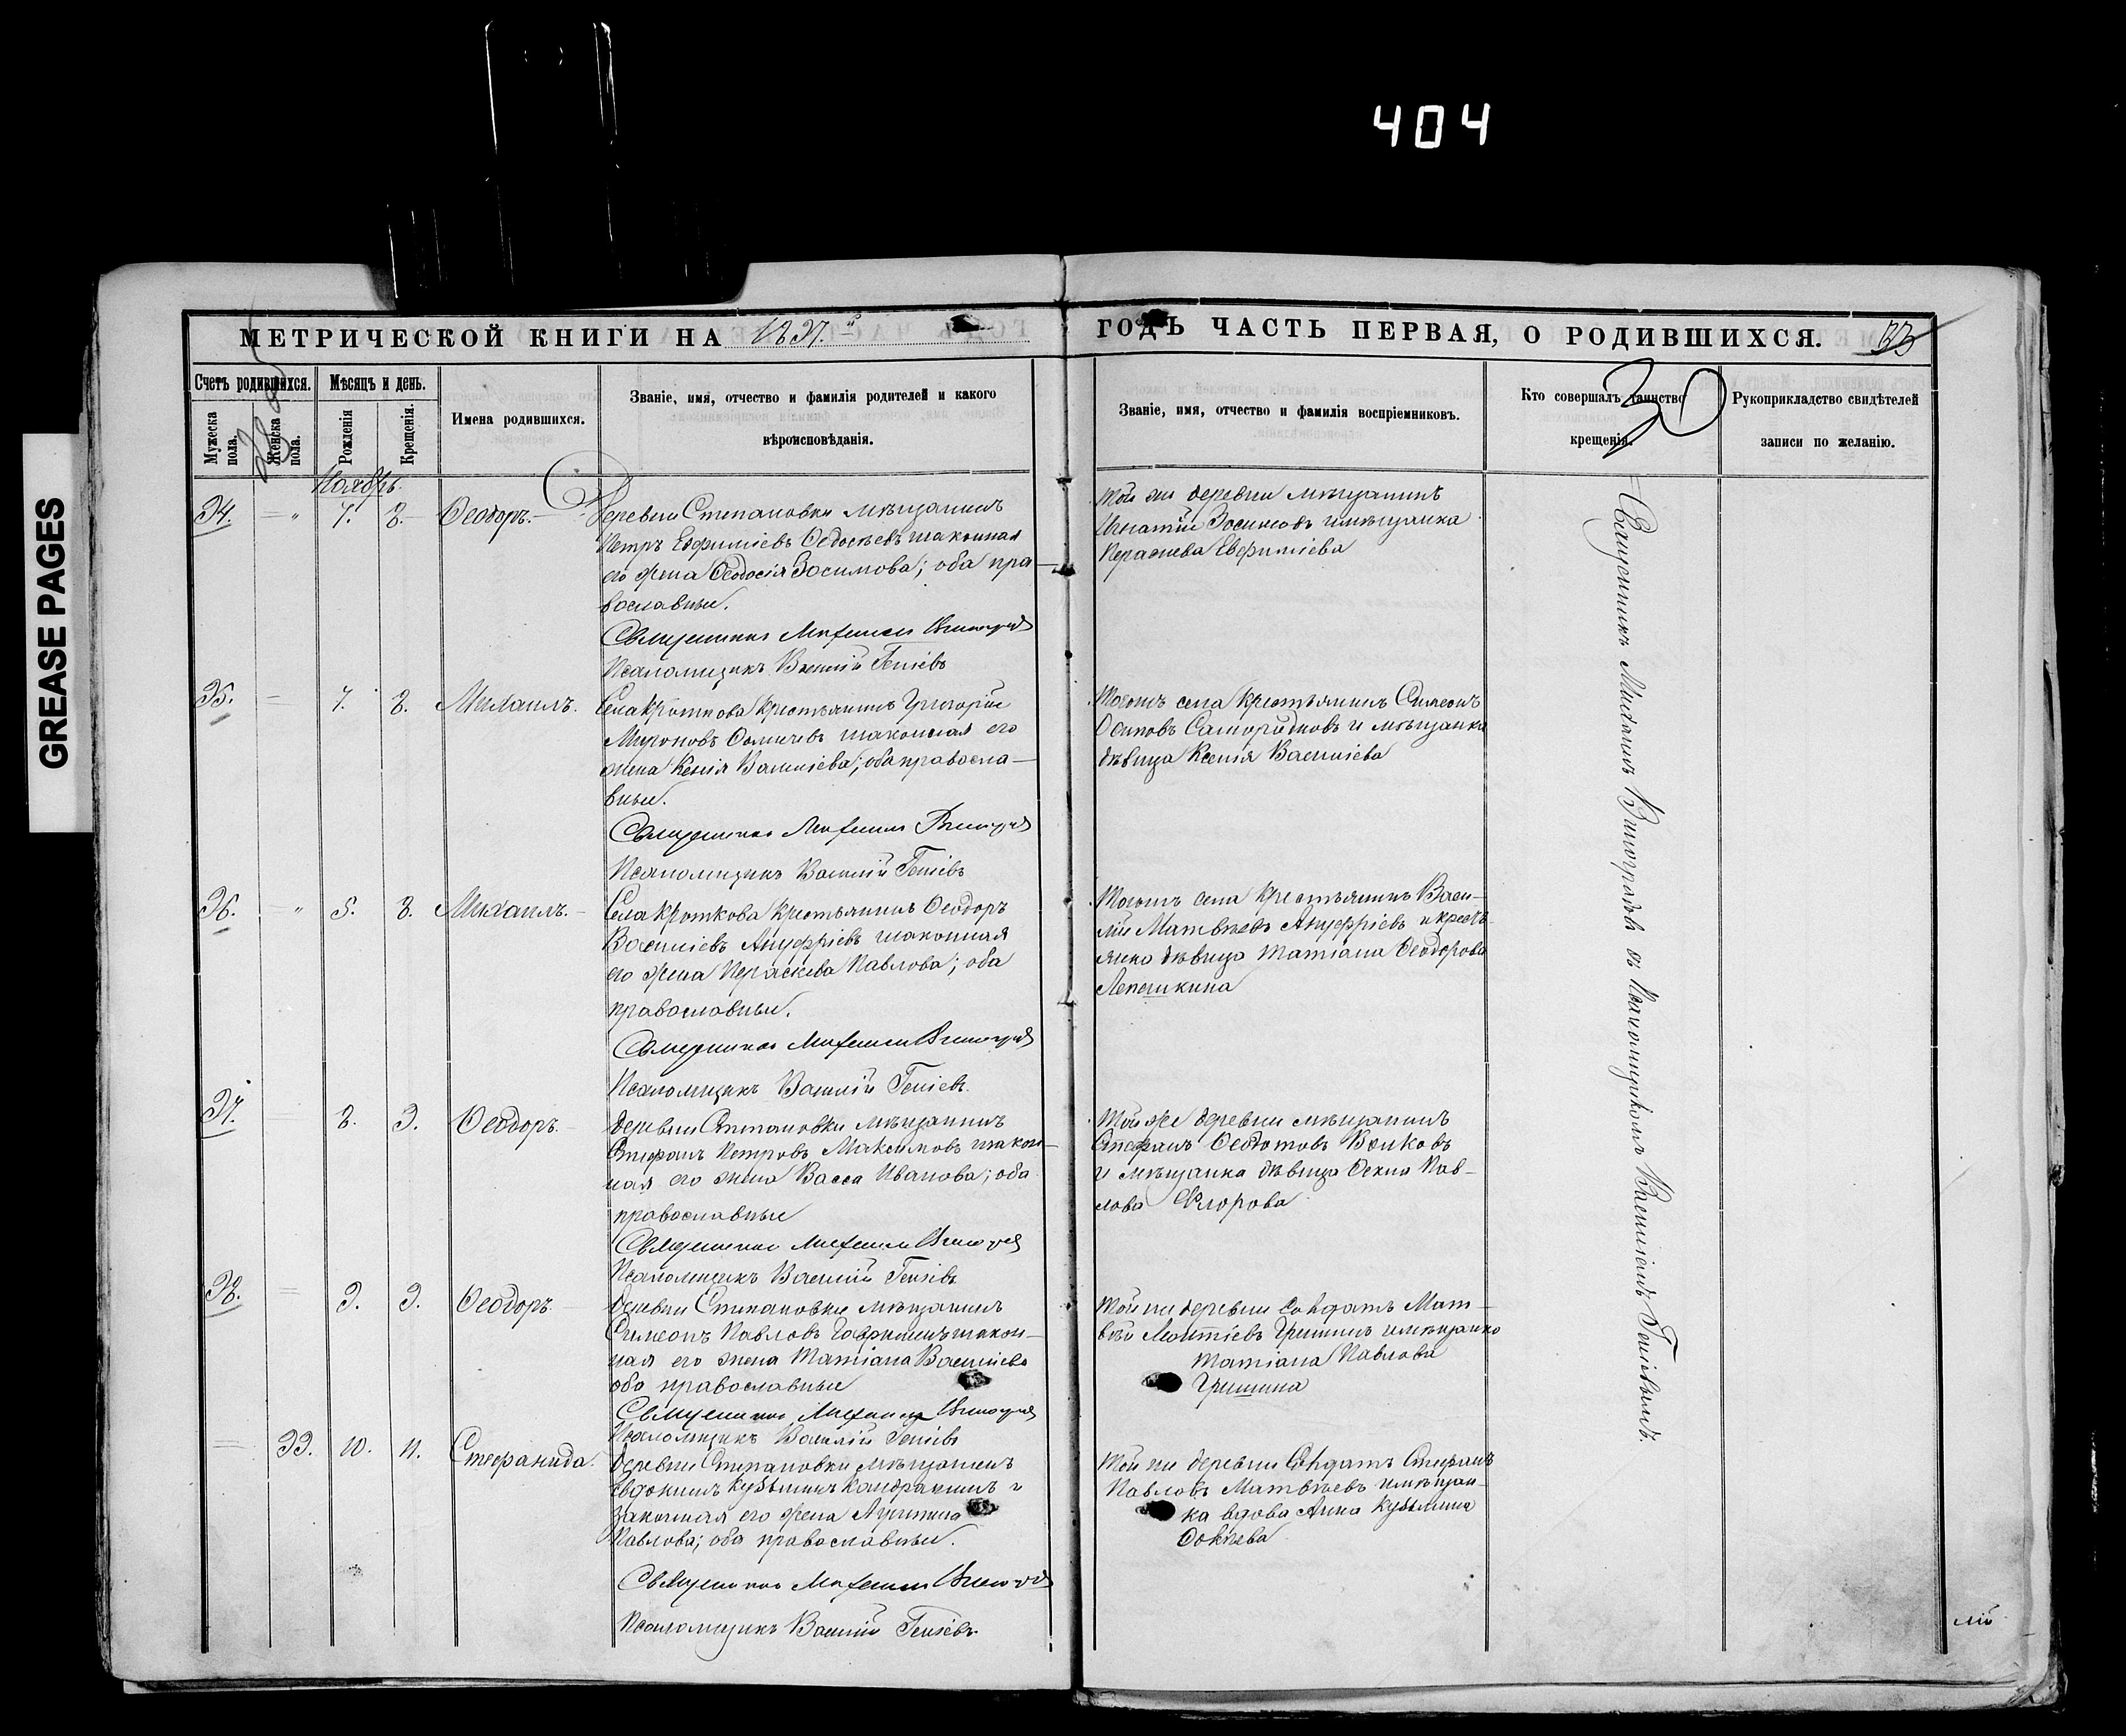 404
GREASE PAGES
МЕТРИЧЕСКОЙ КНИГИ НА
ГОДЪ ЧАСТЬ ПЕРВАЯ, О РОДИВШИХСЯ.
Счетъ родившихся.
Мужеска пола.
Женска пола.
Мѣсяцъ и день.
Рожденія
Крещенія.
Имена родившихся.
Званіе, имя, отчество и фамилія родителей и какого
вѣроисповѣданія.
Званіе, имя, отчество и фамилія воспріемниковъ.
Кто совершалъ таинство
крещенія.
Рукоприкладство свидѣтелей
записи по желанію.
Ноябрь.
34. 7. 8. Ѳеодоръ.
Деревни Степановки мѣщанинъ
Петръ Евфиміевъ Ѳедосѣевъ изаконная
его жена Ѳеодосія Зосимова; оба пра-
вославные.
Священникъ Михаилъ
Псаломщикъ Василій Геніевъ
Той же деревни мѣщанинъ
Игнатій Зосимовъ имѣщанка
Евфиміева
35. 7. 8. Михаилъ.
Села Кроткова крестьянинъ Григорій
Мироновъ изаконная его
жена Ксенія Василіева; оба правосла-
вные.
Священникъ Михаилъ
Псаломщикъ Василій Геніевъ
Тогожъ села крестьянинъ Симеонъ
Осиповъ и мѣщанка
дѣвица Ксенія Василіева
36. 5. 8. Михаилъ.
Села Кроткова крестьянинъ Ѳеодоръ
Василіевъ Ануфріевъ изаконная
его жена Параскева Павлова; оба
православные.
Священникъ Михаилъ
Псаломщикъ Василій Геніевъ.
Тогожъ села крестьянинъ Васи-
лій Матвѣевъ Ануфріевъ и кресть-
янка дѣвица Татіана Ѳеодорова
Лепешкина
37. 8. 9. Ѳеодоръ.
Деревни Степановки мѣщанинъ
Стефанъ Петровъ Максимовъ изакон-
ная его жена Васса Иванова; оба
православные
Священникъ Михаилъ
Псаломщикъ Василій Геніевъ
Той же деревни мѣщанинъ
Стефанъ Ѳедотовъ Волковъ
и мѣщанка дѣвица Пав-
лова Флорова
38. 9. 9. Ѳеодоръ.
Деревни Степановки мѣщанинъ
Симеонъ Павловъ изакон-
ная его жена Татіана Василіева
оба православные
Священникъ Михаилъ
Псаломщикъ Василій Геніевъ
Той же деревни солдатъ Мат-
вѣй Гришинъ имѣщанка
Татіана Павлова
Гришина
39. 10. 11. Стефанида.
Деревни Степановки мѣщанинъ
Евдокимъ Кузьминъ и
законная его жена
Павлова; оба православные.
Священникъ Михаилъ
Псаломщикъ Василій Геніевъ.
Той же деревни солдатъ Стефанъ
Павловъ Матвѣевъ имѣщан-
ка вдова Анна Кузьмина
Священникъ Михаилъ Виноградовъ съ Псаломщикомъ Василіемъ Геніевымъ.